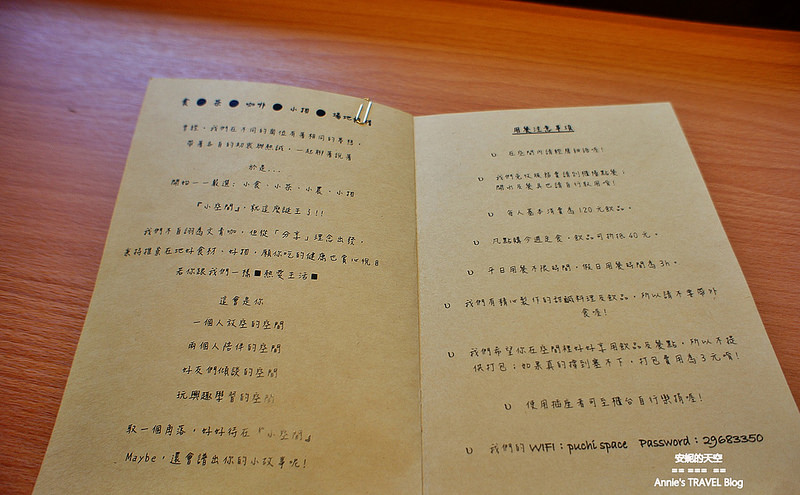 食●茶●咖啡●小酒●場地
曾經，我們在不同的崗位有著相同的夢想，
帶著各自的起衷與熱誠，一起聊著說著
於是...
開始一一嚴選：小食、小茶、小農、小酒
「小空間」，就這麼誕生了!!
我們不自詡為文青咖，但從「分享」理念出發，
兼持探索在地好食材、好酒，願你吃的健康也賞心悅目
若你跟我們一樣■熱愛生活■
這會是你
一個人放空的空間
兩個人陪伴的空間
好友們傾談的空間
玩興趣學習的空間
找一個角落，好好待在「小空間」
Maybe，還會譜出你的小故事呢!
用餐注意事項
υ 在空間內請輕聲細語喔!
υ 我們免收服務費請到櫃檯點餐，
開水及餐具也請自行取用唷!
υ 每人基本消費為120元飲品。
υ 凡點購今週定食，飲品可折抵60元。
υ 平日用餐不限時間，假日用餐時間為3h。
υ 我們有精心製作的甜鹹料理及飲品，所以請不要帶外
食喔!
υ 我們希望你在空間裡好好享用飲品及餐點，所以不提
供打包；如果真的撐到塞不下，打包費用為3元唷!
υ 使用插座者可至櫃台自行樂捐喔!
υ 我們的WIFI：puchi space Password：29683350
安妮的天空
Annie's TRAVEL Blog